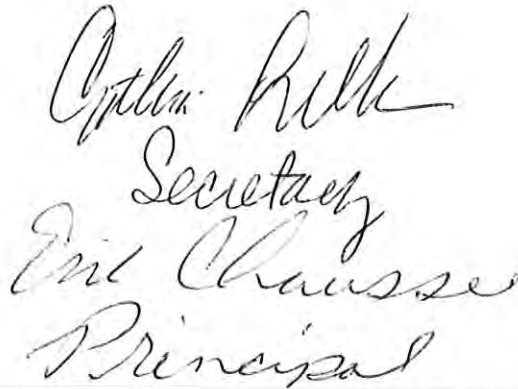 Cynthia
Secretary
Eric Chausse
Principal